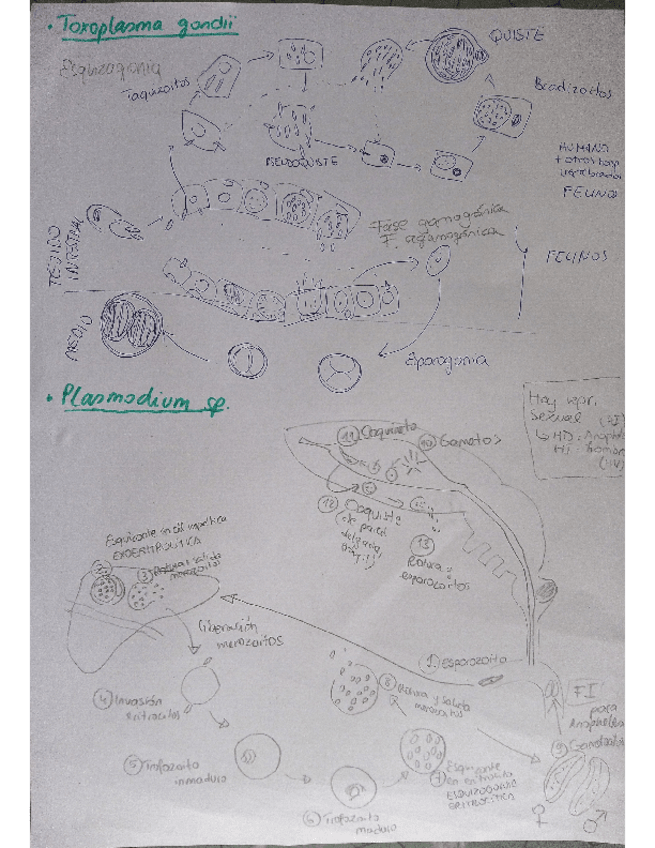 • Toxoplasma gondii
Esquizogonia
Taquizoitos
PSEUDOQUISTE
QUISTE
Bradizoitos
HUMANO
+ otros
FELINO
TEJIDO
INTESTINAL
Fase gamogónica
F. agamogónica
FELINOS
MEDIO
Esporogonia
• Plasmodium sp.
Hay repr.
sexual
11 Ooquineto
10 Gametos
12 Ooquiste
de pared
delgada,
13 Rotura y
esporozoitos
Esquizonte en cél hepática
EXOERITROCÍTICA
3 Rotura y salida
merozoitos
Liberación
merozoitos
1. Esporozoito
4 Invasión
eritrocitos
5 Trofozoito
inmaduro
6 Trofozoito
maduro
7 Esquizonte
en eritrocito
ESQUIZOGONIA
ERITROCÍTICA
8 Rotura y salida
merozoitos
FI
para
Anopheles
9
♀ ♂